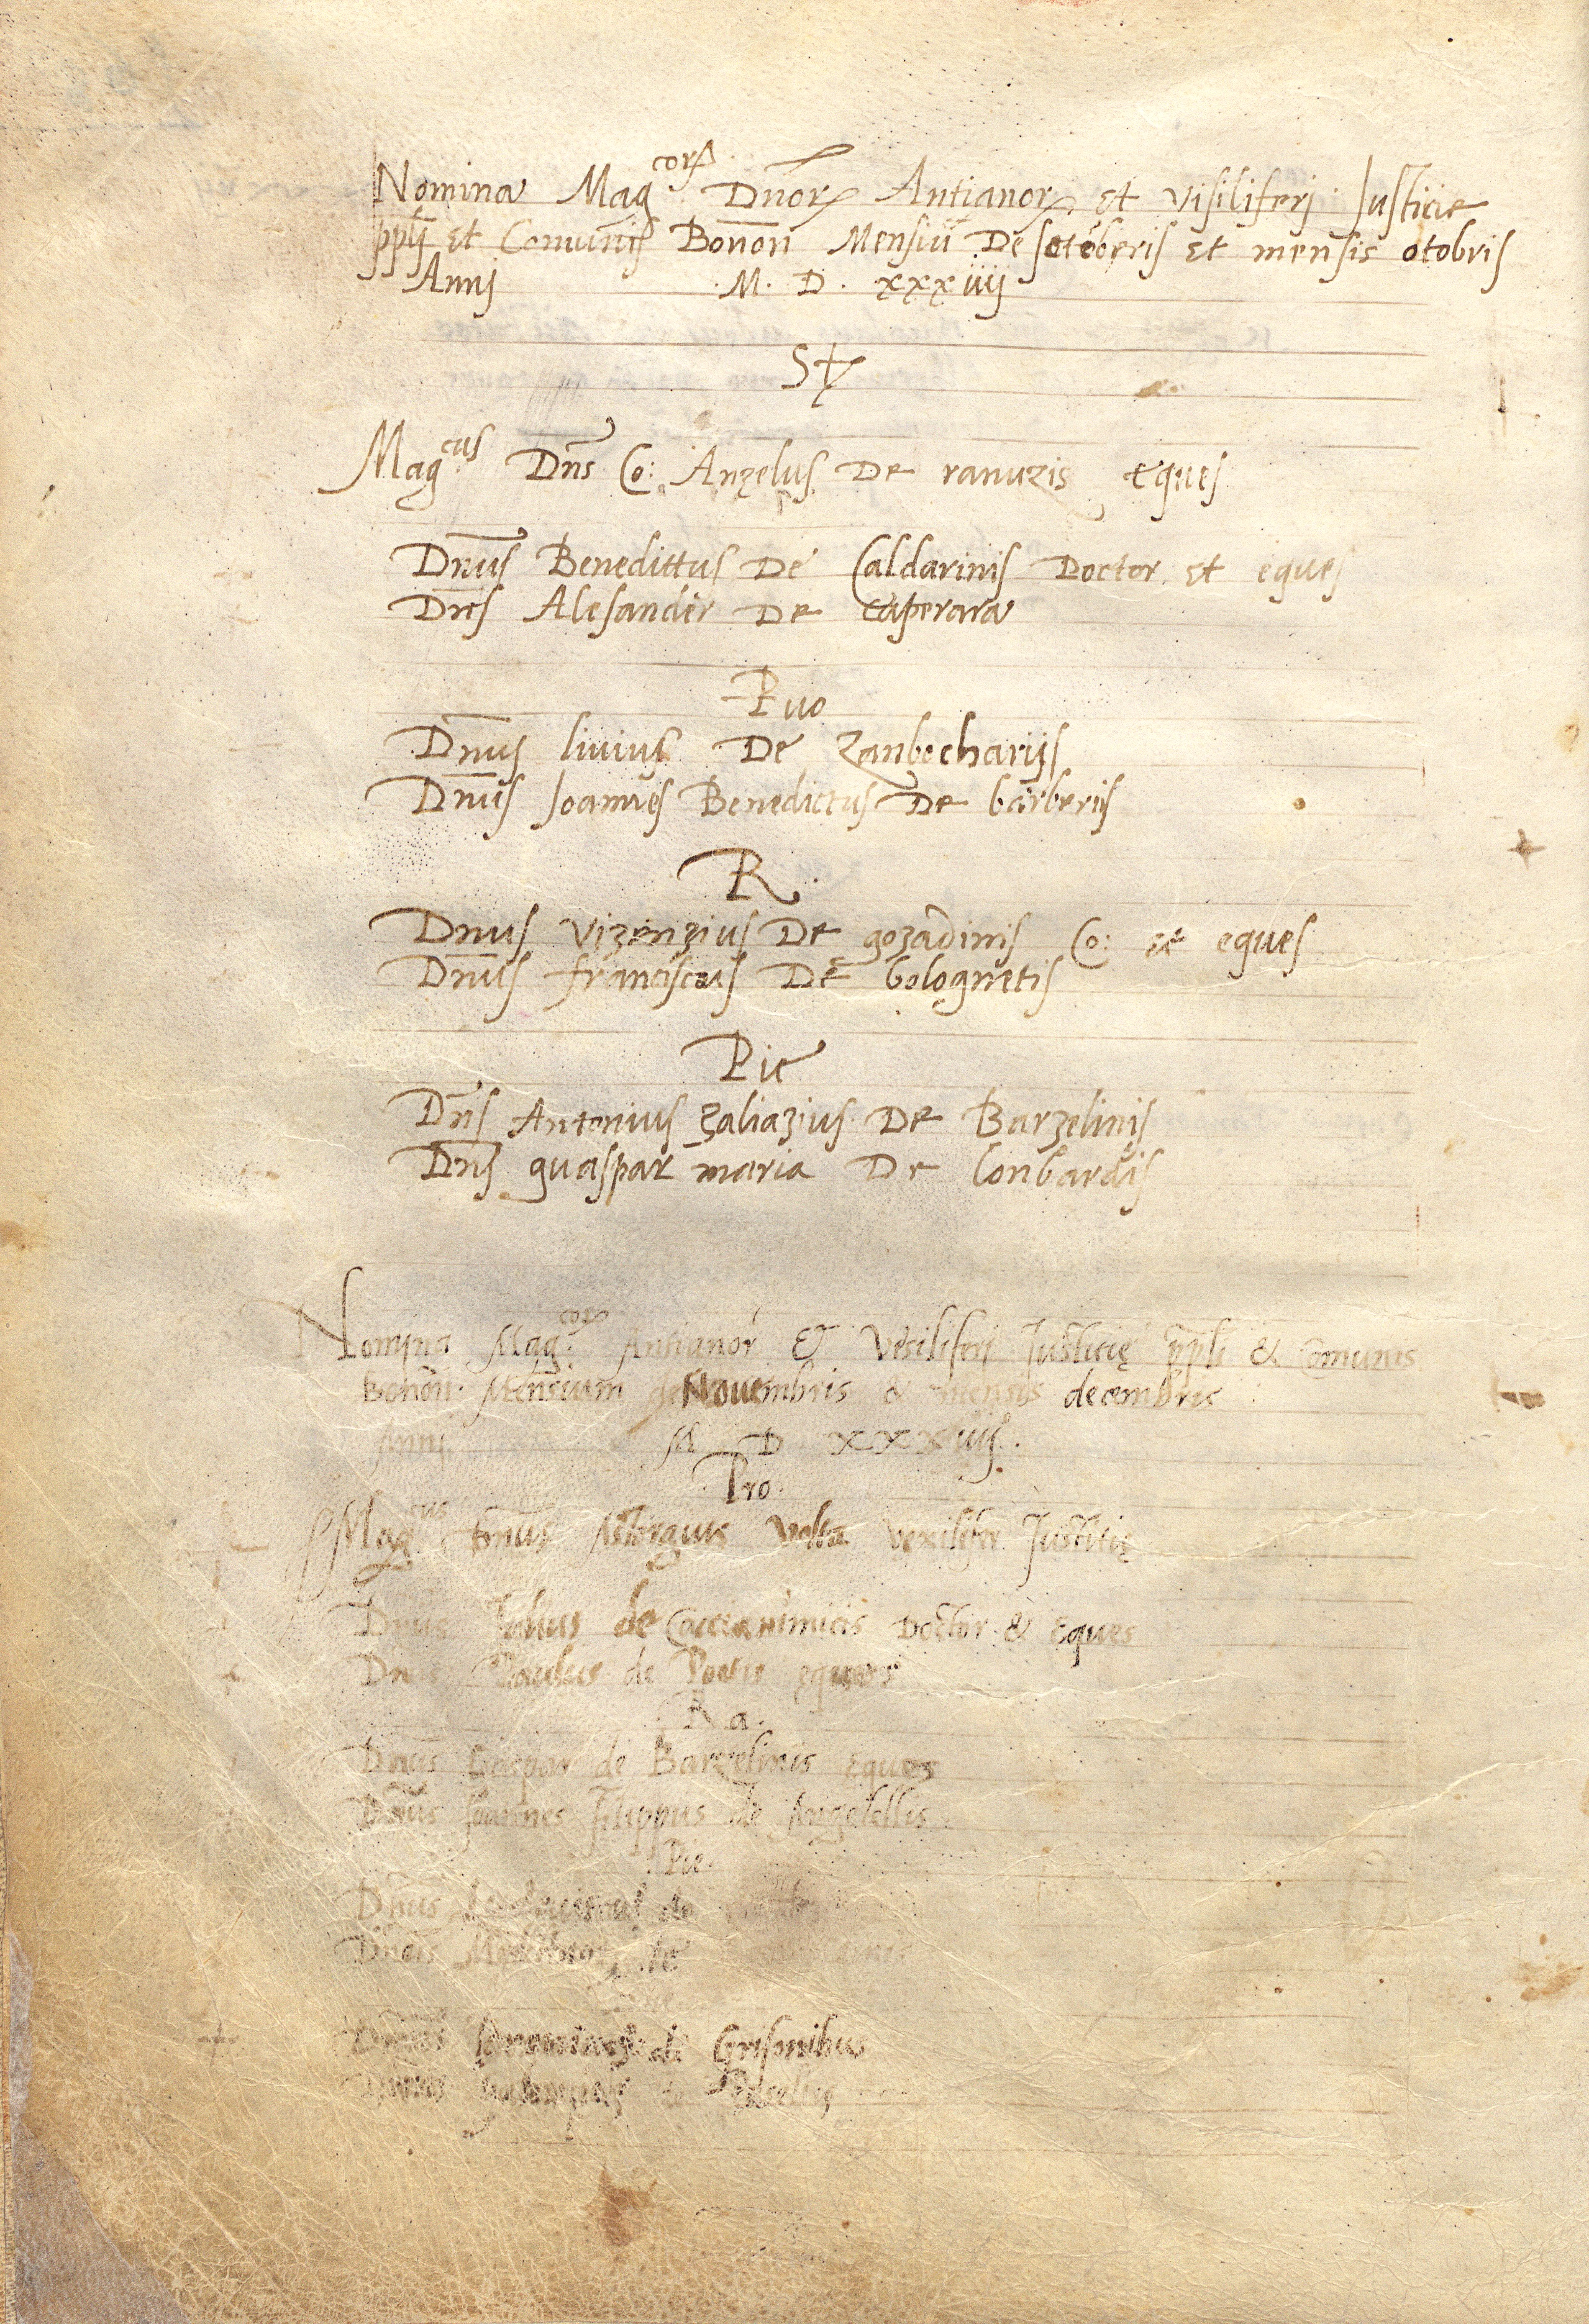 Nomina Mag.cor Dn̄or Antianor et visiliferj Justicie
ppłi et Comunis Bonon̄ Mensiū De setēberis et mensis otobris
Annj M. D. xxxiiij
St
Mag.cus Dn̄s Co: Anzelus De ranuzis eques
Dn̄us Benedittus De Caldarinis Doctor et eques
Dn̄s Alesander De caperara
Puo
Dn̄us livius De Zanbecharijs
Dn̄us Joannes Benedictus De barberijs
R.
Dn̄us Vizenzius De gozadinis Co: et eques
Dn̄us franciscus De bolognetis
Pie
Dn̄s Antonius Zaliazius De Barzelinis
Dn̄s guaspar maria De lonbardis
Nomina Mag.cor Antianor & Vesiliferj Justitię ppłi & comunis
Bonon̄. Mensium de Novembris & mensis decembris
Annj M D xxxiiij.
Pro.
Mag.cus Dn̄us Astorguis Volta vexilifer Justitię
Dn̄us Julius de Caccianimicis Doctor & Eques
Dn̄us Paulus de Poetis eques
Ra.
Dn̄us Gaspar de Barzelinis eques
Dn̄us Joannes Filippus de Angelellis
Pie.
Dn̄us Ludovicus de
Dn̄us de
Dn̄us de Grisonibus
Dn̄us de